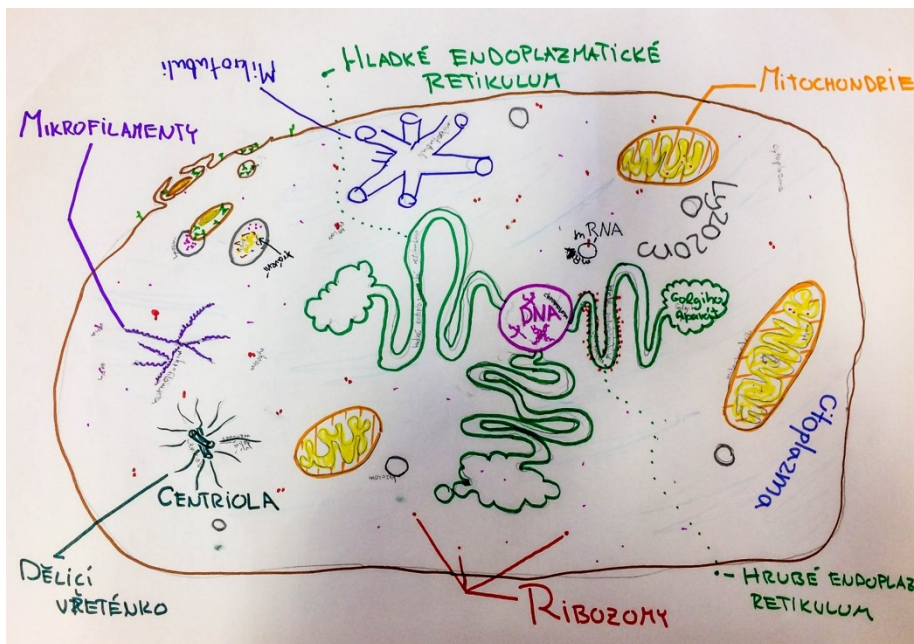 Mikrotubuli
HLADKÉ ENDOPLAZMATICKÉ
RETIKULUM
MITOCHONDRIE
MIKROFILAMENTY
mRNA
Lyzozom
DNA
Golgiho
Aparát
Citoplazma
CENTRIOLA
DĚLICÍ
VŘETÉNKO
RIBOZOMY
HRUBÉ ENDOPLAZ
RETIKULUM